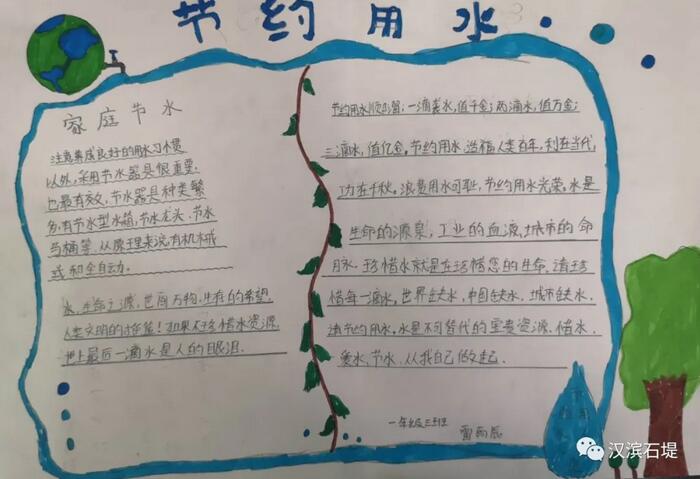 节约用水
家庭节水
注意养成良好的用水习惯
以外,采用节水器具很重要,
也最有效,节水器具种类繁
多,有节水型水箱,节水龙头、节水
马桶等,从原理来说,有机械
或和全自动.
水,生命之源,世间万物,生存的希望,
人类文明的
如果不珍惜水资源,
地上最后一滴水是人的眼泪.
节约用水顺口溜,一滴
水,值千金;两滴水,值万金;
三滴水,值亿金.节约用水,造福人类百年,利在当代,
功在千秋.浪费用水可耻,节约用水光荣.水是
生命的源泉,工业的血液,城市的命
脉.珍惜水就是在珍惜您的生命.请珍
惜每一滴水,世界缺水,中国缺水,城市缺水.
请节约用水.水是不可替代的重要资源,惜水、
爱水、节水、从我自己做起.
一年级三班
汉滨石堤